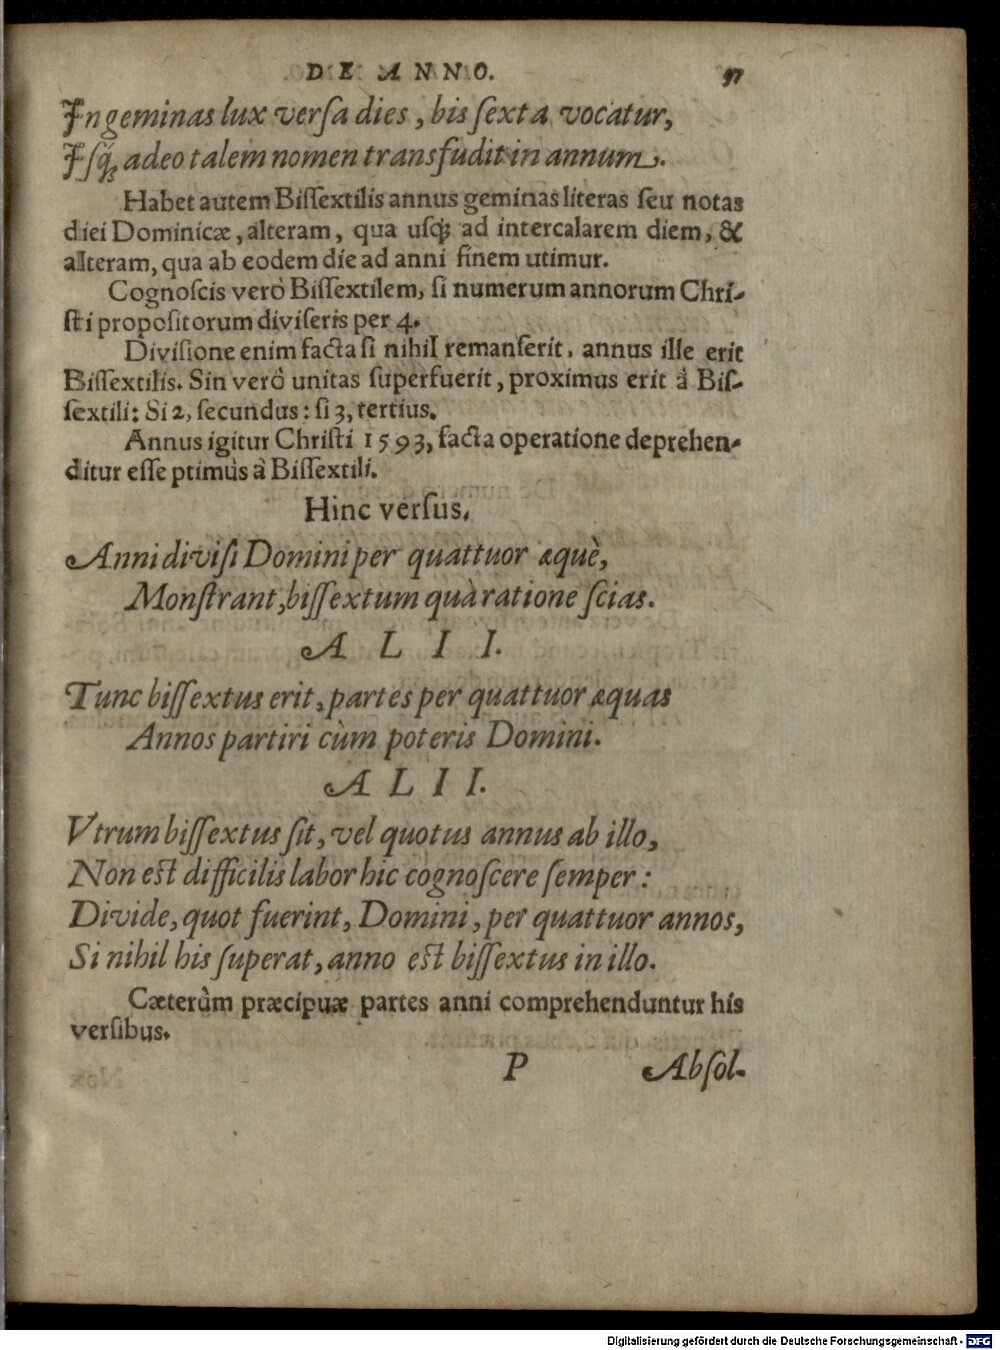 DE ANNO. 57
In geminas lux versa dies, bis sexta vocatur,
Isq́; adeo talem nomen transfudit in annum.
Habet autem Bissextilis annus geminas literas seu notas
diei Dominicæ, alteram, qua usq; ad intercalarem diem, &
alteram, qua ab eodem die ad anni finem utimur.
Cognoscis verò Bissextilem, si numerum annorum Chri-
sti propositorum diviseris per 4.
Divisione enim facta si nihil remanserit, annus ille erit
Bissextilis. Sin verò unitas superfuerit, proximus erit à Bis-
sextili: Si 2, secundus: si 3, tertius.
Annus igitur Christi 1593, facta operatione deprehen-
ditur esse ptimùs à Bissextili.
Hinc versus.
Anni divisi Domini per quattuor æquè,
Monstrant, bissextum quà ratione scias.
ALII.
Tunc bissextus erit, partes per quattuor æquas
Annos partiri cùm poteris Domini.
ALII.
Vtrum bissextus sit, vel quotus annus ab illo,
Non est difficilis labor hic cognoscere semper:
Divide, quot fuerint, Domini, per quattuor annos,
Si nihil his superat, anno est bissextus in illo.
Cæterùm præcipuæ partes anni comprehenduntur his
versibus.
P Absol-
Digitalisierung gefördert durch die Deutsche Forschungsgemeinschaft - DFG